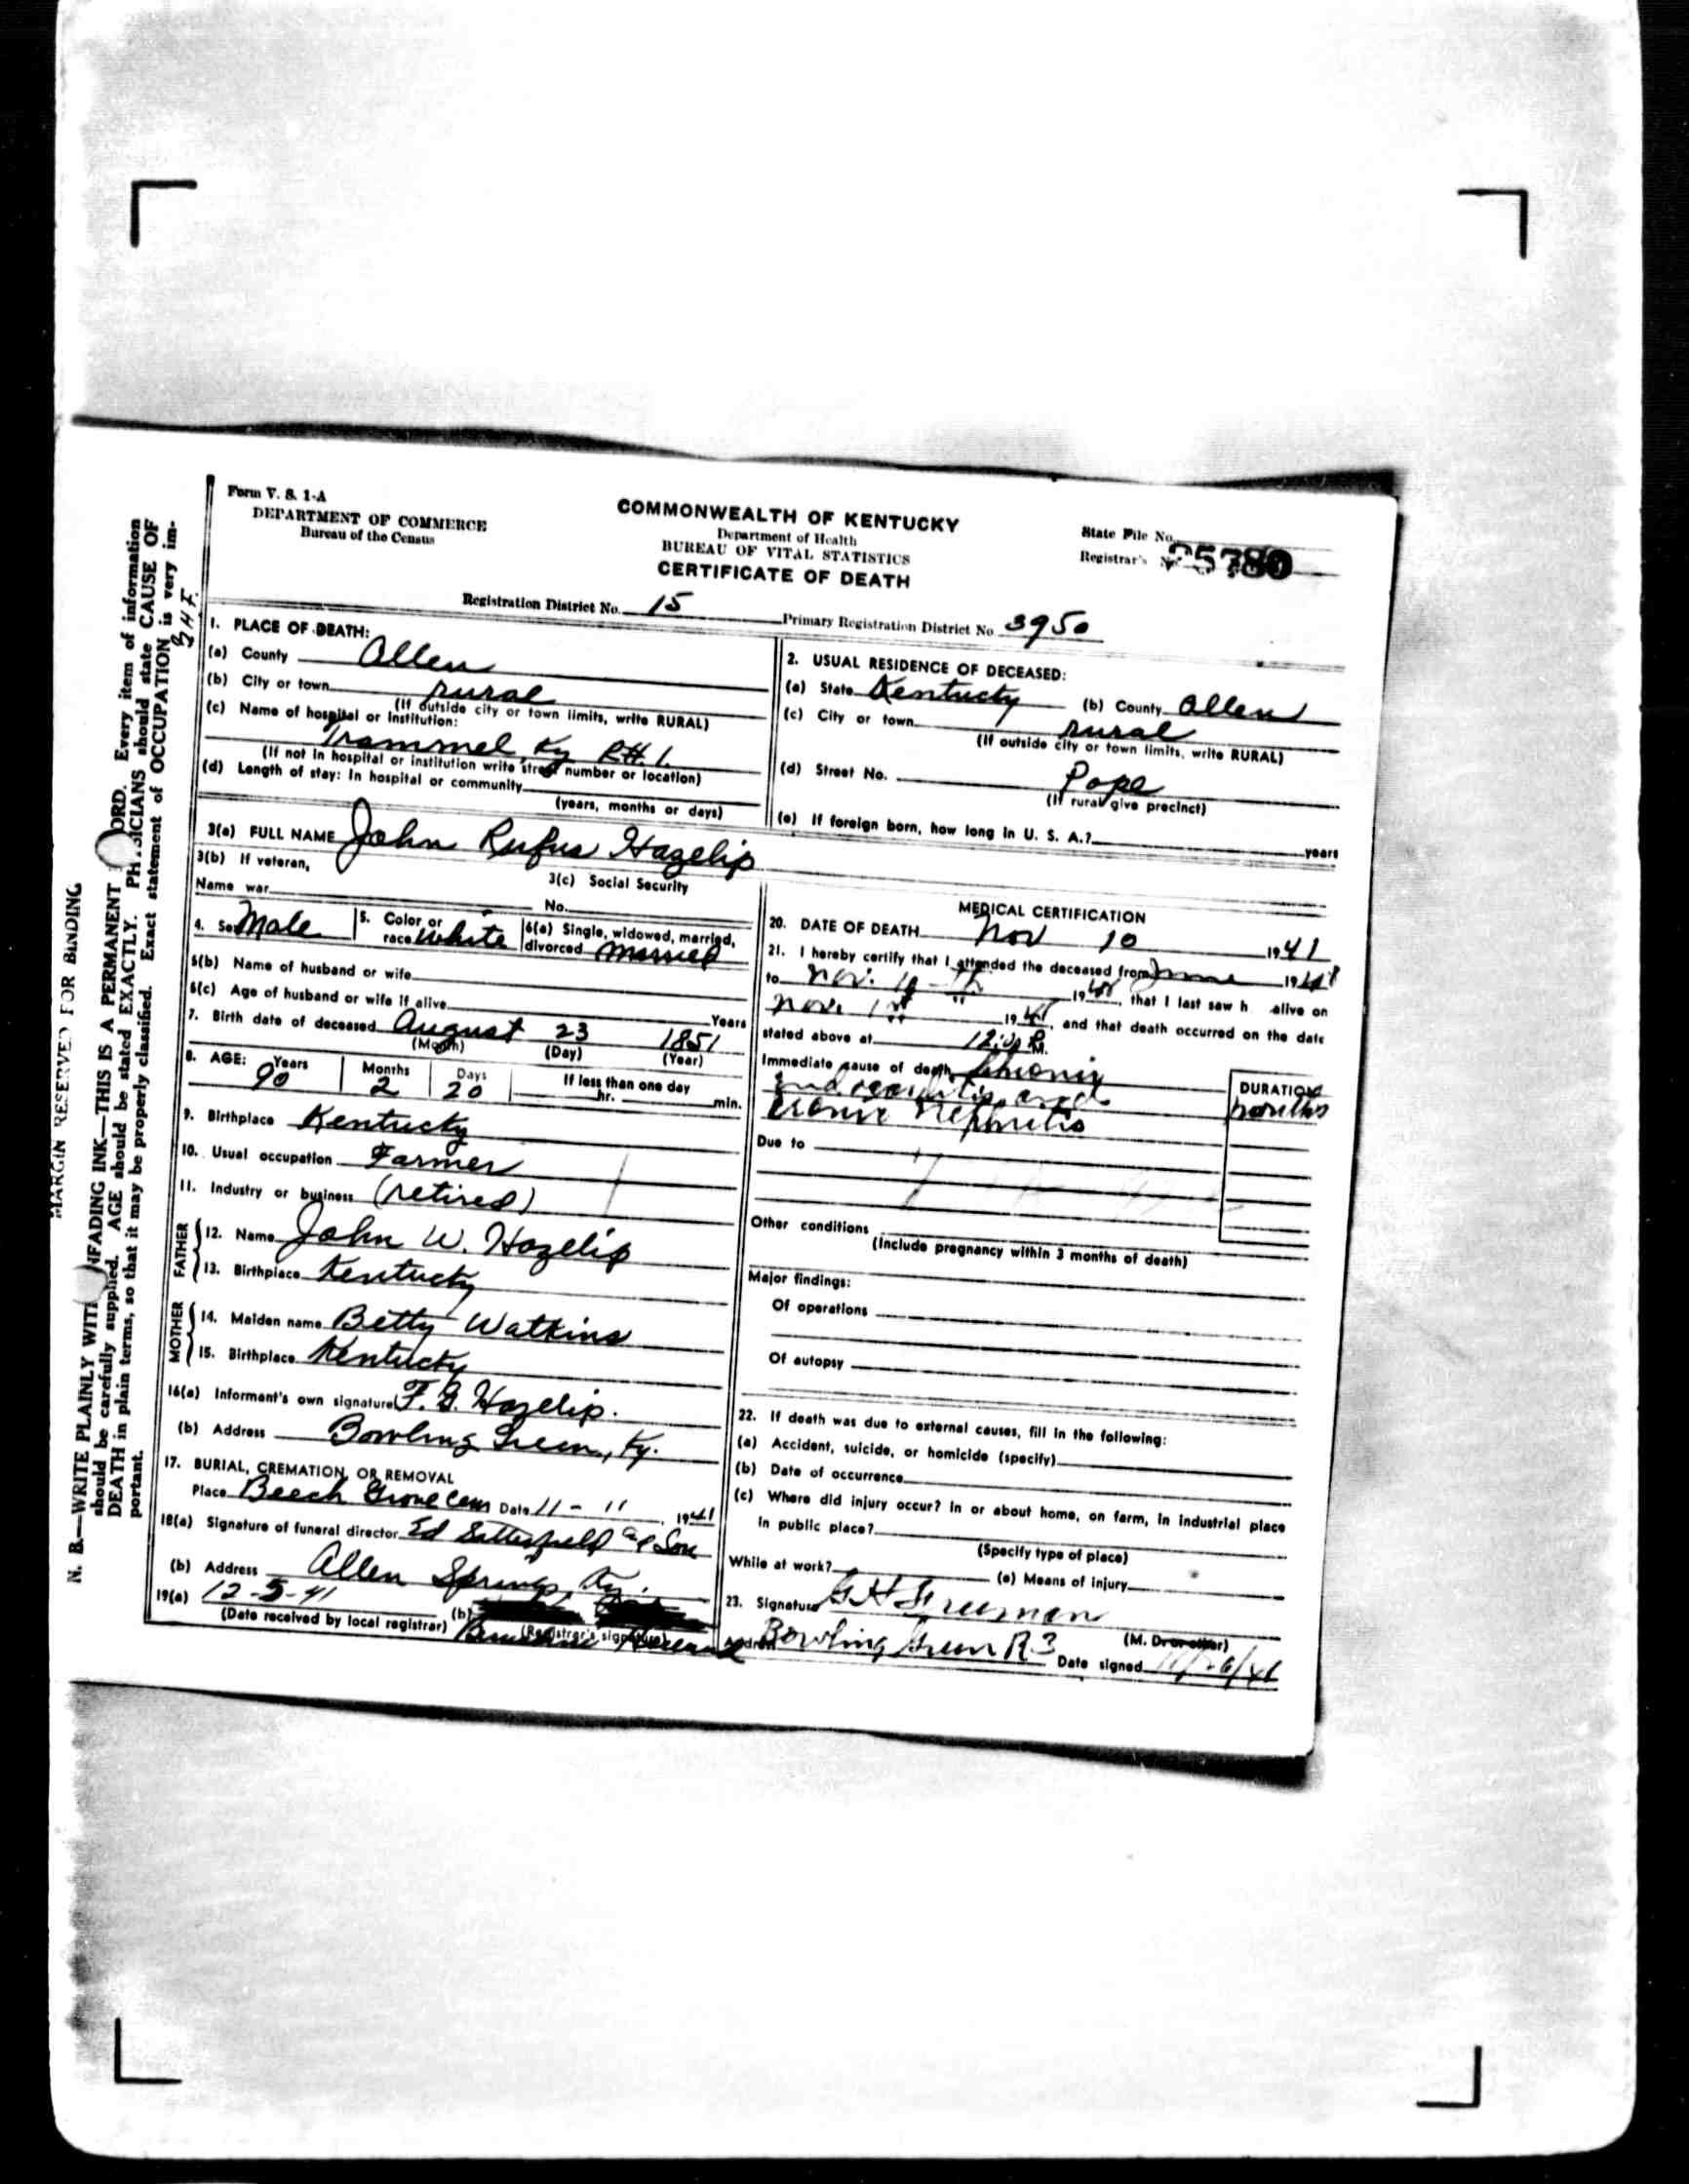 Form V. S. 1-A
DEPARTMENT OF COMMERCE
Bureau of the Census
COMMONWEALTH OF KENTUCKY
Department of Health
BUREAU OF VITAL STATISTICS
CERTIFICATE OF DEATH
State File No.
Registrar's No. 25780
Registration District No. 15
Primary Registration District No. 3950
1. PLACE OF DEATH:
(a) County Allen
(b) City or town rural
(If outside city or town limits, write RURAL)
(c) Name of hospital or institution:
Trammel Ky R#1.
(If not in hospital or institution write street number or location)
(d) Length of stay: In hospital or community
(years, months or days)
2. USUAL RESIDENCE OF DECEASED:
(a) State Kentucky (b) County Allen
(c) City or town rural
(If outside city or town limits, write RURAL)
(d) Street No. Pope
(If rural give precinct)
(e) If foreign born, how long in U. S. A.? years
3(a) FULL NAME John Rufus Hazelip
3(b) If veteran,
Name war
3(c) Social Security
No.
4. Sex Male
5. Color or race White
6(a) Single, widowed, married, divorced Married
6(b) Name of husband or wife
6(c) Age of husband or wife if alive Years
7. Birth date of deceased August 23 1851
(Month) (Day) (Year)
8. AGE: Years Months Days If less than one day
90 2 20 hr. min.
9. Birthplace Kentucky
10. Usual occupation Farmer
11. Industry or business (retired)
FATHER
12. Name John W. Hazelip
13. Birthplace Kentucky
MOTHER
14. Maiden name Betty Watkins
15. Birthplace Kentucky
16(a) Informant's own signature F. G. Hazelip.
(b) Address Bowling Green, Ky.
17. BURIAL, CREMATION, OR REMOVAL
Place Beech Grove Cem Date 11-11, 1941
18(a) Signature of funeral director Ed Satterfield & Son
(b) Address Allen Springs, Ky.
19(a) 12-5-41 (b)
(Date received by local registrar) (Registrar's signature)
MEDICAL CERTIFICATION
20. DATE OF DEATH Nov 10 1941
21. I hereby certify that I attended the deceased from June 1941
to Nov. 1941, that I last saw h alive on
Nov. 1st 1941, and that death occurred on the date
stated above at 12:00 P.M.
Immediate cause of death Chronic
Endocarditis and
cronic Nephritis
DURATION
months
Due to
Other conditions
(Include pregnancy within 3 months of death)
Major findings:
Of operations
Of autopsy
22. If death was due to external causes, fill in the following:
(a) Accident, suicide, or homicide (specify)
(b) Date of occurrence
(c) Where did injury occur? In or about home, on farm, in industrial place
in public place?
(Specify type of place)
While at work? (e) Means of injury
23. Signature G H Freeman
(M. D. or other)
Address Bowling Green R.3 Date signed
MARGIN RESERVED FOR BINDING
N. B.—WRITE PLAINLY WITH UNFADING INK—THIS IS A PERMANENT RECORD. Every item of information
should be carefully supplied. AGE should be stated EXACTLY. PHYSICIANS should state CAUSE OF
DEATH in plain terms, so that it may be properly classified. Exact statement of OCCUPATION is very im-
portant.